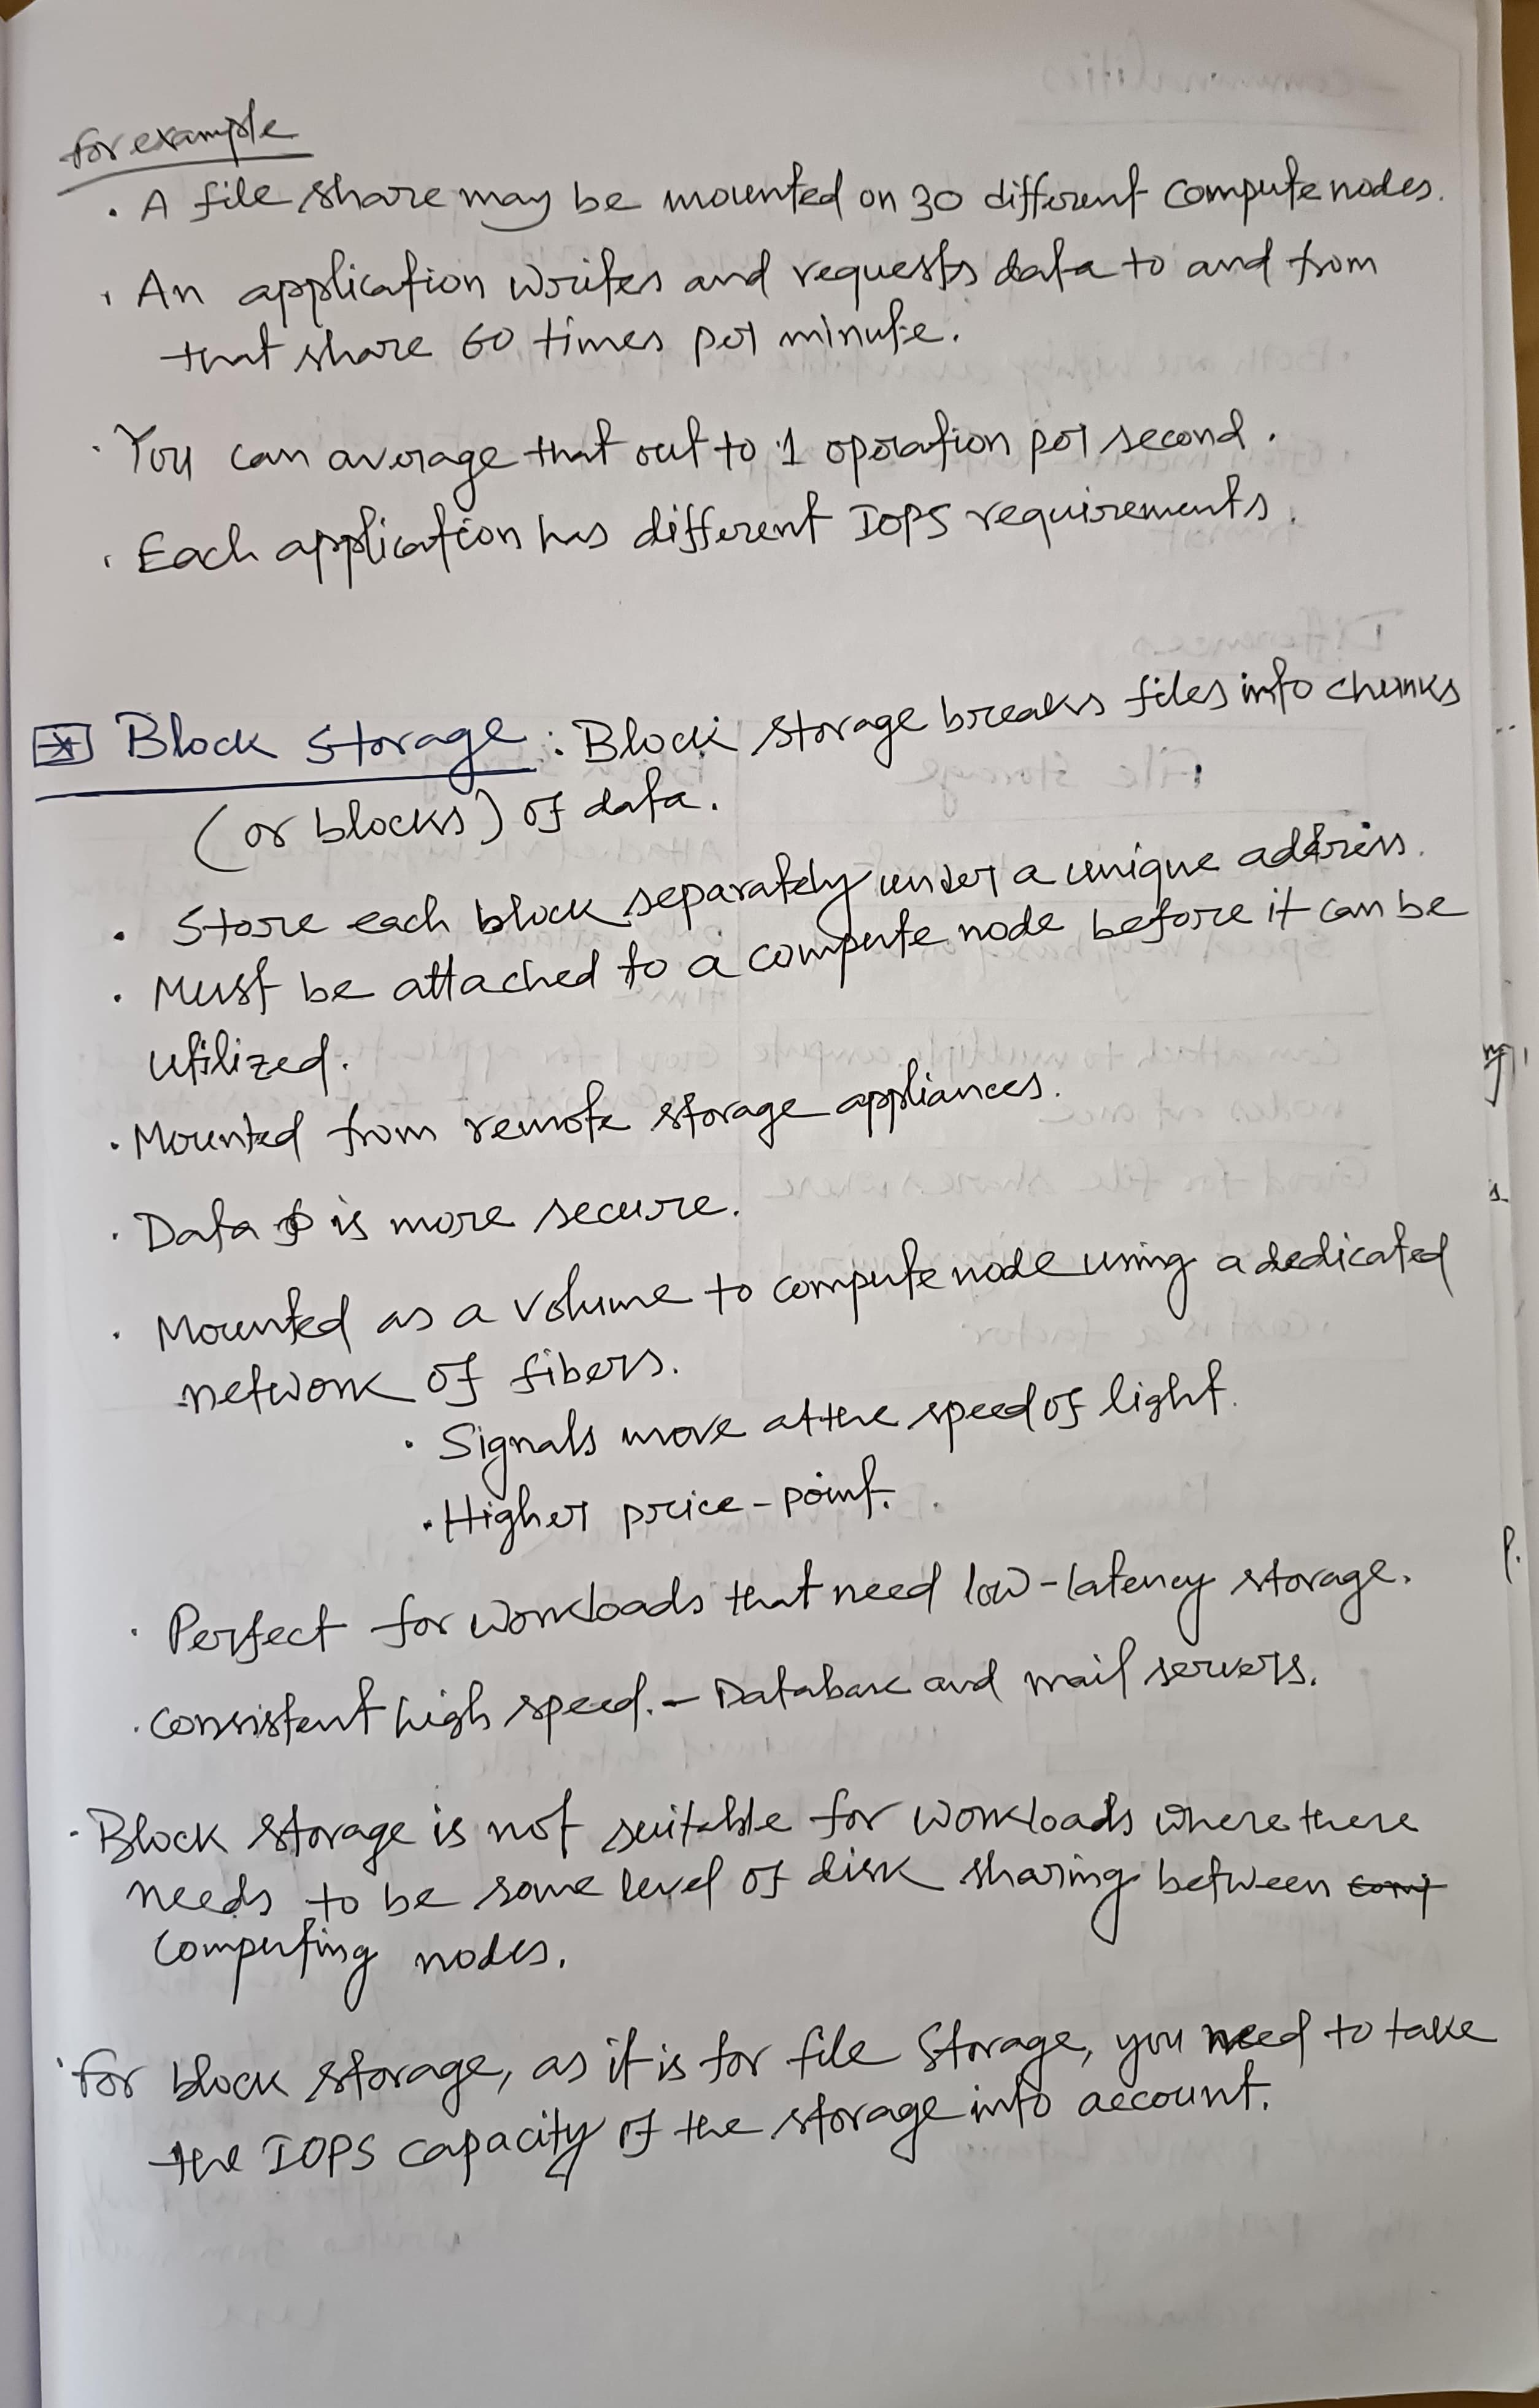 For example
· A file share may be mounted on 30 different compute nodes.
· An application writes and requests data to and from
that share 60 times per minute.
· You can average that out to 1 operation per second.
· Each application has different IOPS requirements.
* Block Storage : Block storage breaks files into chunks
(or blocks) of data.
· Store each block separately under a unique address.
· Must be attached to a compute node before it can be
utilized.
· Mounted from remote storage appliances.
· Data is more secure.
· Mounted as a volume to compute node using a dedicated
network of fibers.
· Signals move at the speed of light.
· Higher price-point.
· Perfect for workloads that need low-latency storage.
· Consistent high speed. - Database and mail servers.
· Block storage is not suitable for workloads where there
needs to be some level of disk sharing between
Computing nodes.
· For block storage, as it is for file storage, you need to take
the IOPS capacity of the storage into account.